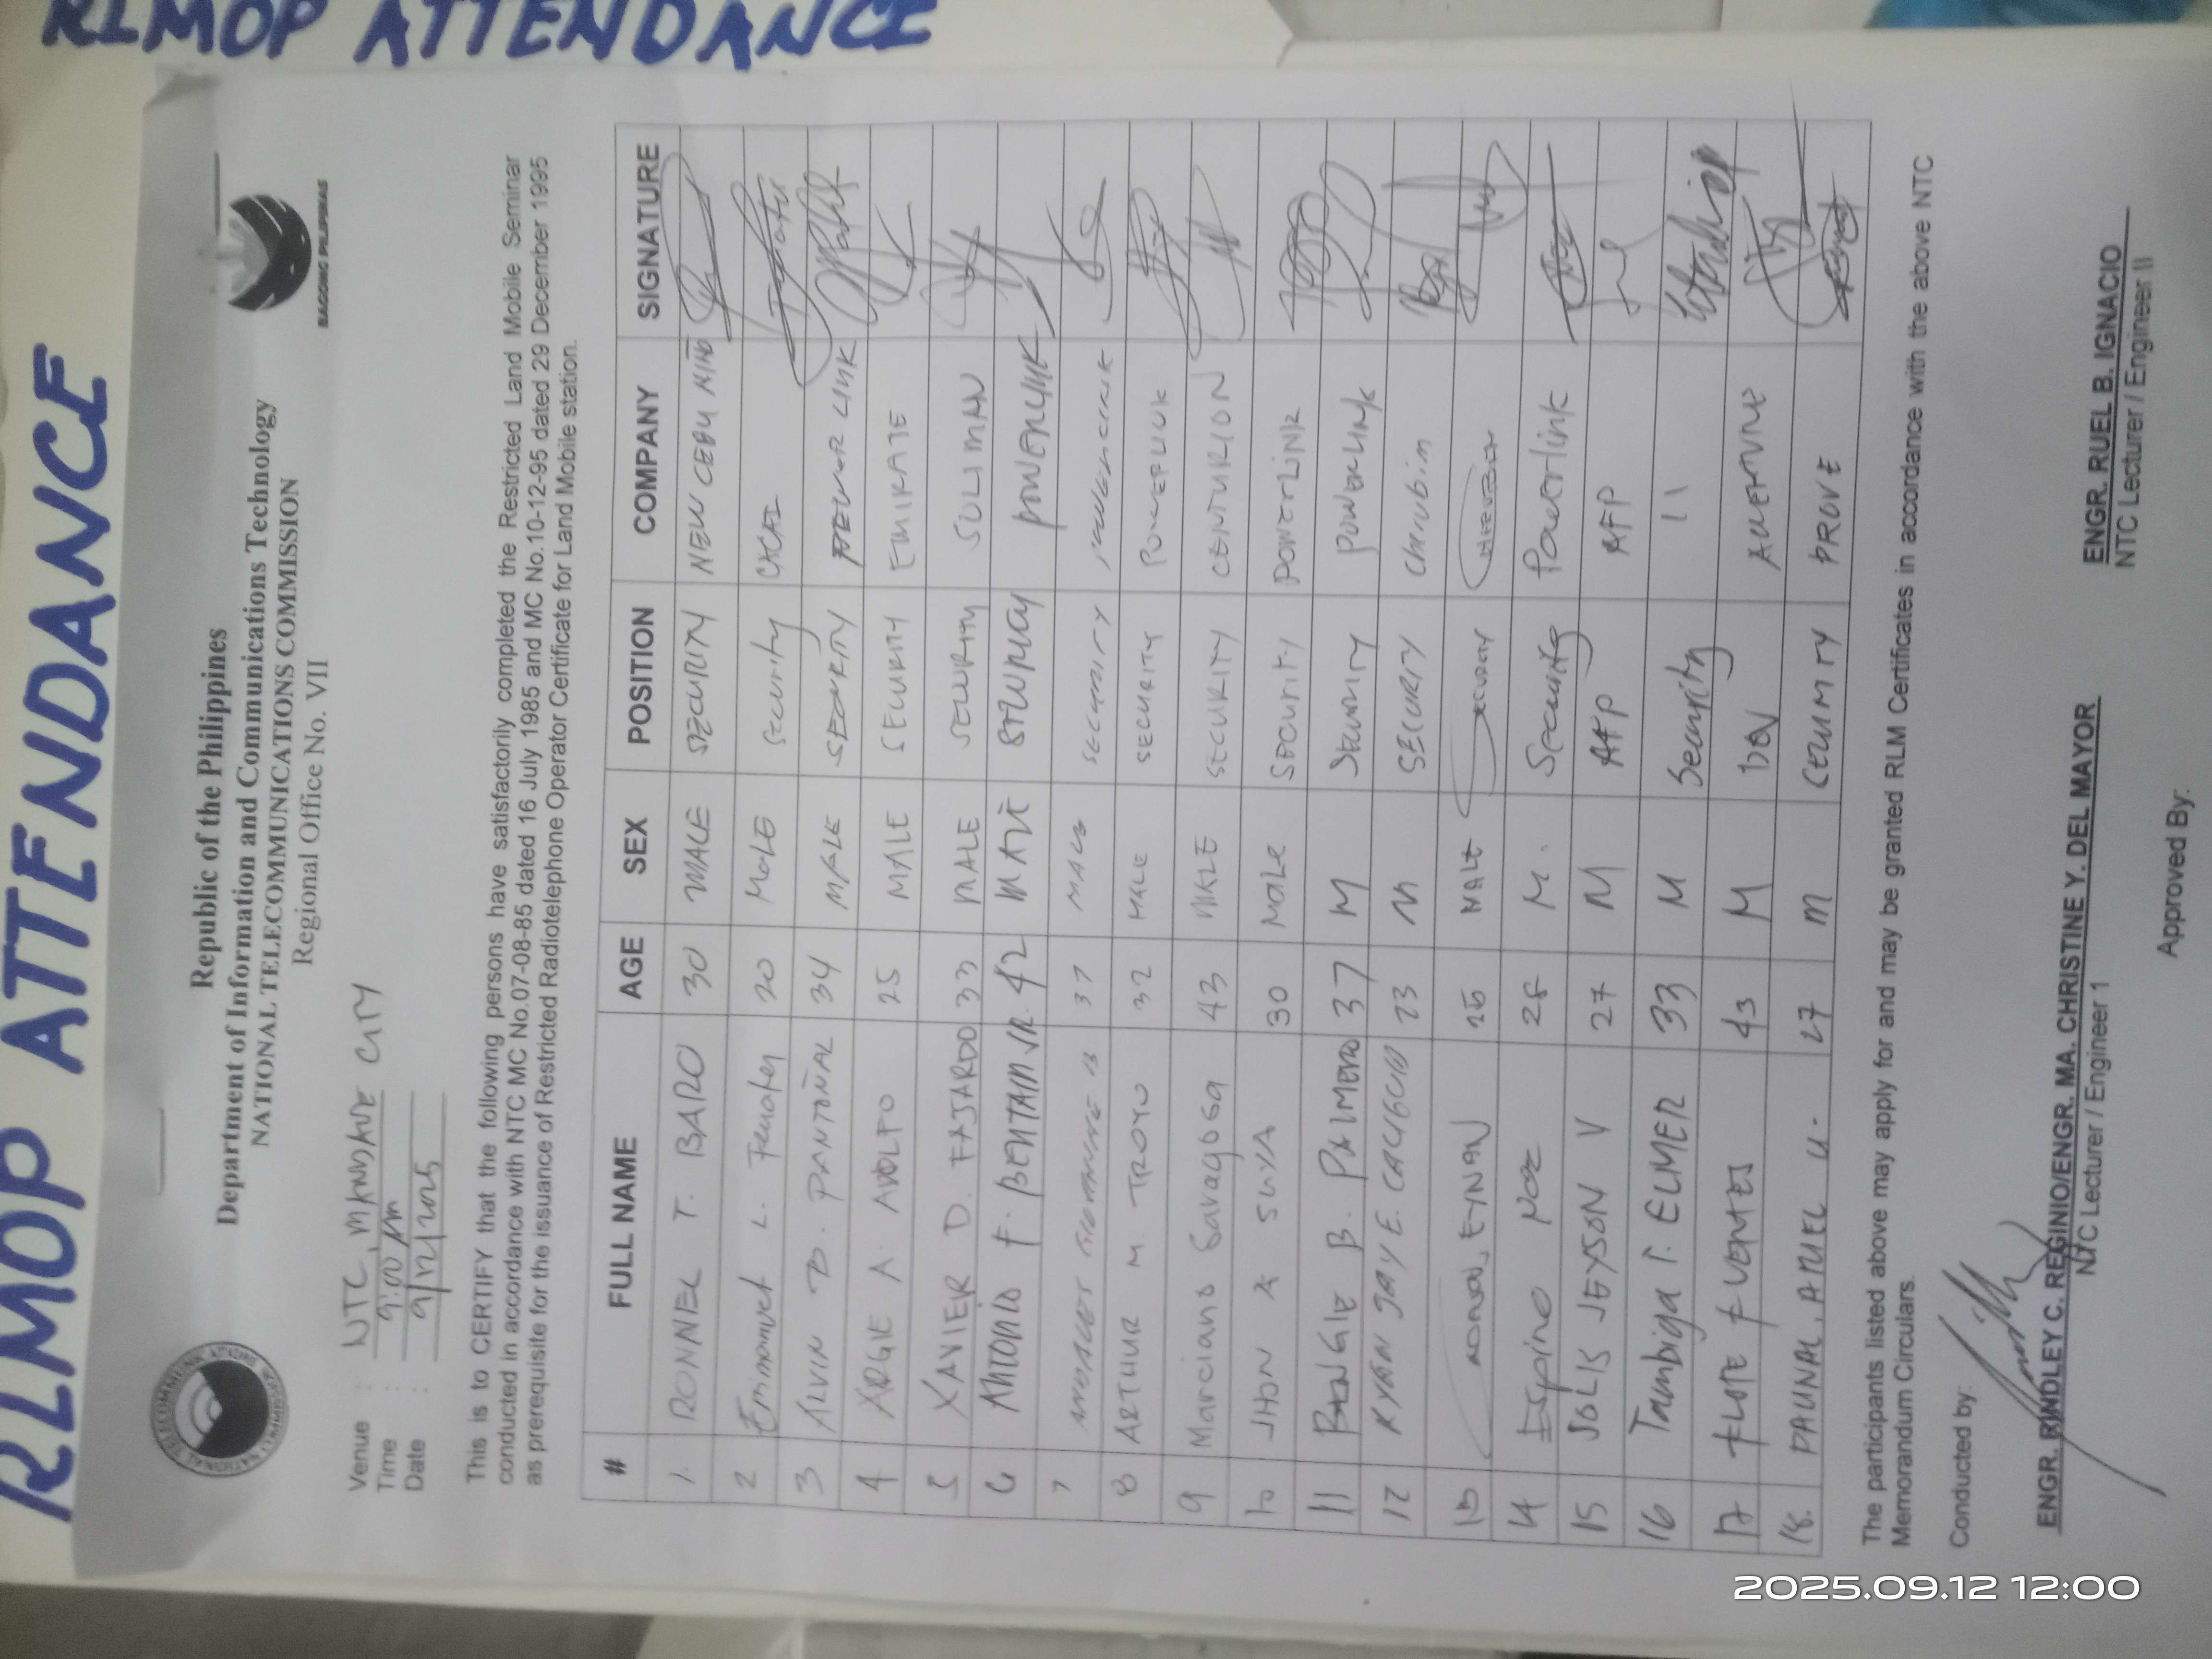 RLMOP ATTENDANCE
RLMOP ATTENDANCE
Republic of the Philippines
Department of Information and Communications Technology
NATIONAL TELECOMMUNICATIONS COMMISSION
Regional Office No. VII
BAGONG PILIPINAS
Venue : NTC, MANDAUE CITY
Time : 9:00 AM
Date : 9/12/2025
This is to CERTIFY that the following persons have satisfactorily completed the Restricted Land Mobile Seminar
conducted in accordance with NTC MC No.07-08-85 dated 16 July 1985 and MC No.10-12-95 dated 29 December 1995
as prerequisite for the issuance of Restricted Radiotelephone Operator Certificate for Land Mobile station.
# FULL NAME AGE SEX POSITION COMPANY SIGNATURE
1. RONNEL T. BARO 30 MALE SECURITY NEW CEBU
2 L. 20 MALE Security
3 ALVIN B. PANTOÑAL 34 MALE SECURITY POWER LINK
4 ARGIE A. ADOLFO 25 MALE SECURITY EMIRATE
5 XAVIER D. FAJARDO 33 MALE SECURITY SULIMAN
6 ANTONIO F. BENTAIN JR. 42 MALE SECURITY POWERLINK
7 37 MALE SECURITY POWERLINK
8 ARTHUR M. TROYO 32 MALE SECURITY POWERLINK
9 Marciano Saragosa 43 MALE SECURITY CENTURION
10 JHON SUYA 30 MALE SECURITY POWERLINK
11 B. PALMERO 37 M SECURITY POWERLINK
12 RYAN JAY E. 23 M SECURITY Cherubim
13 MALE SECURITY
14 Espino Noe 28 M. Security Powerlink
15 SOLIS JEYSON V 27 M AFP AFP
16 Tambiga T. ELMER 33 M Security 11
17 43 M
18. PAUNAL, ARUEL U. 27 m PROVE
The participants listed above may apply for and may be granted RLM Certificates in accordance with the above NTC
Memorandum Circulars.
Conducted by:
ENGR. RINDLEY C. REGINIO/ENGR. MA. CHRISTINE Y. DEL MAYOR ENGR. RUEL B. IGNACIO
NTC Lecturer / Engineer 1 NTC Lecturer / Engineer II
Approved By:
2025.09.12 12:00